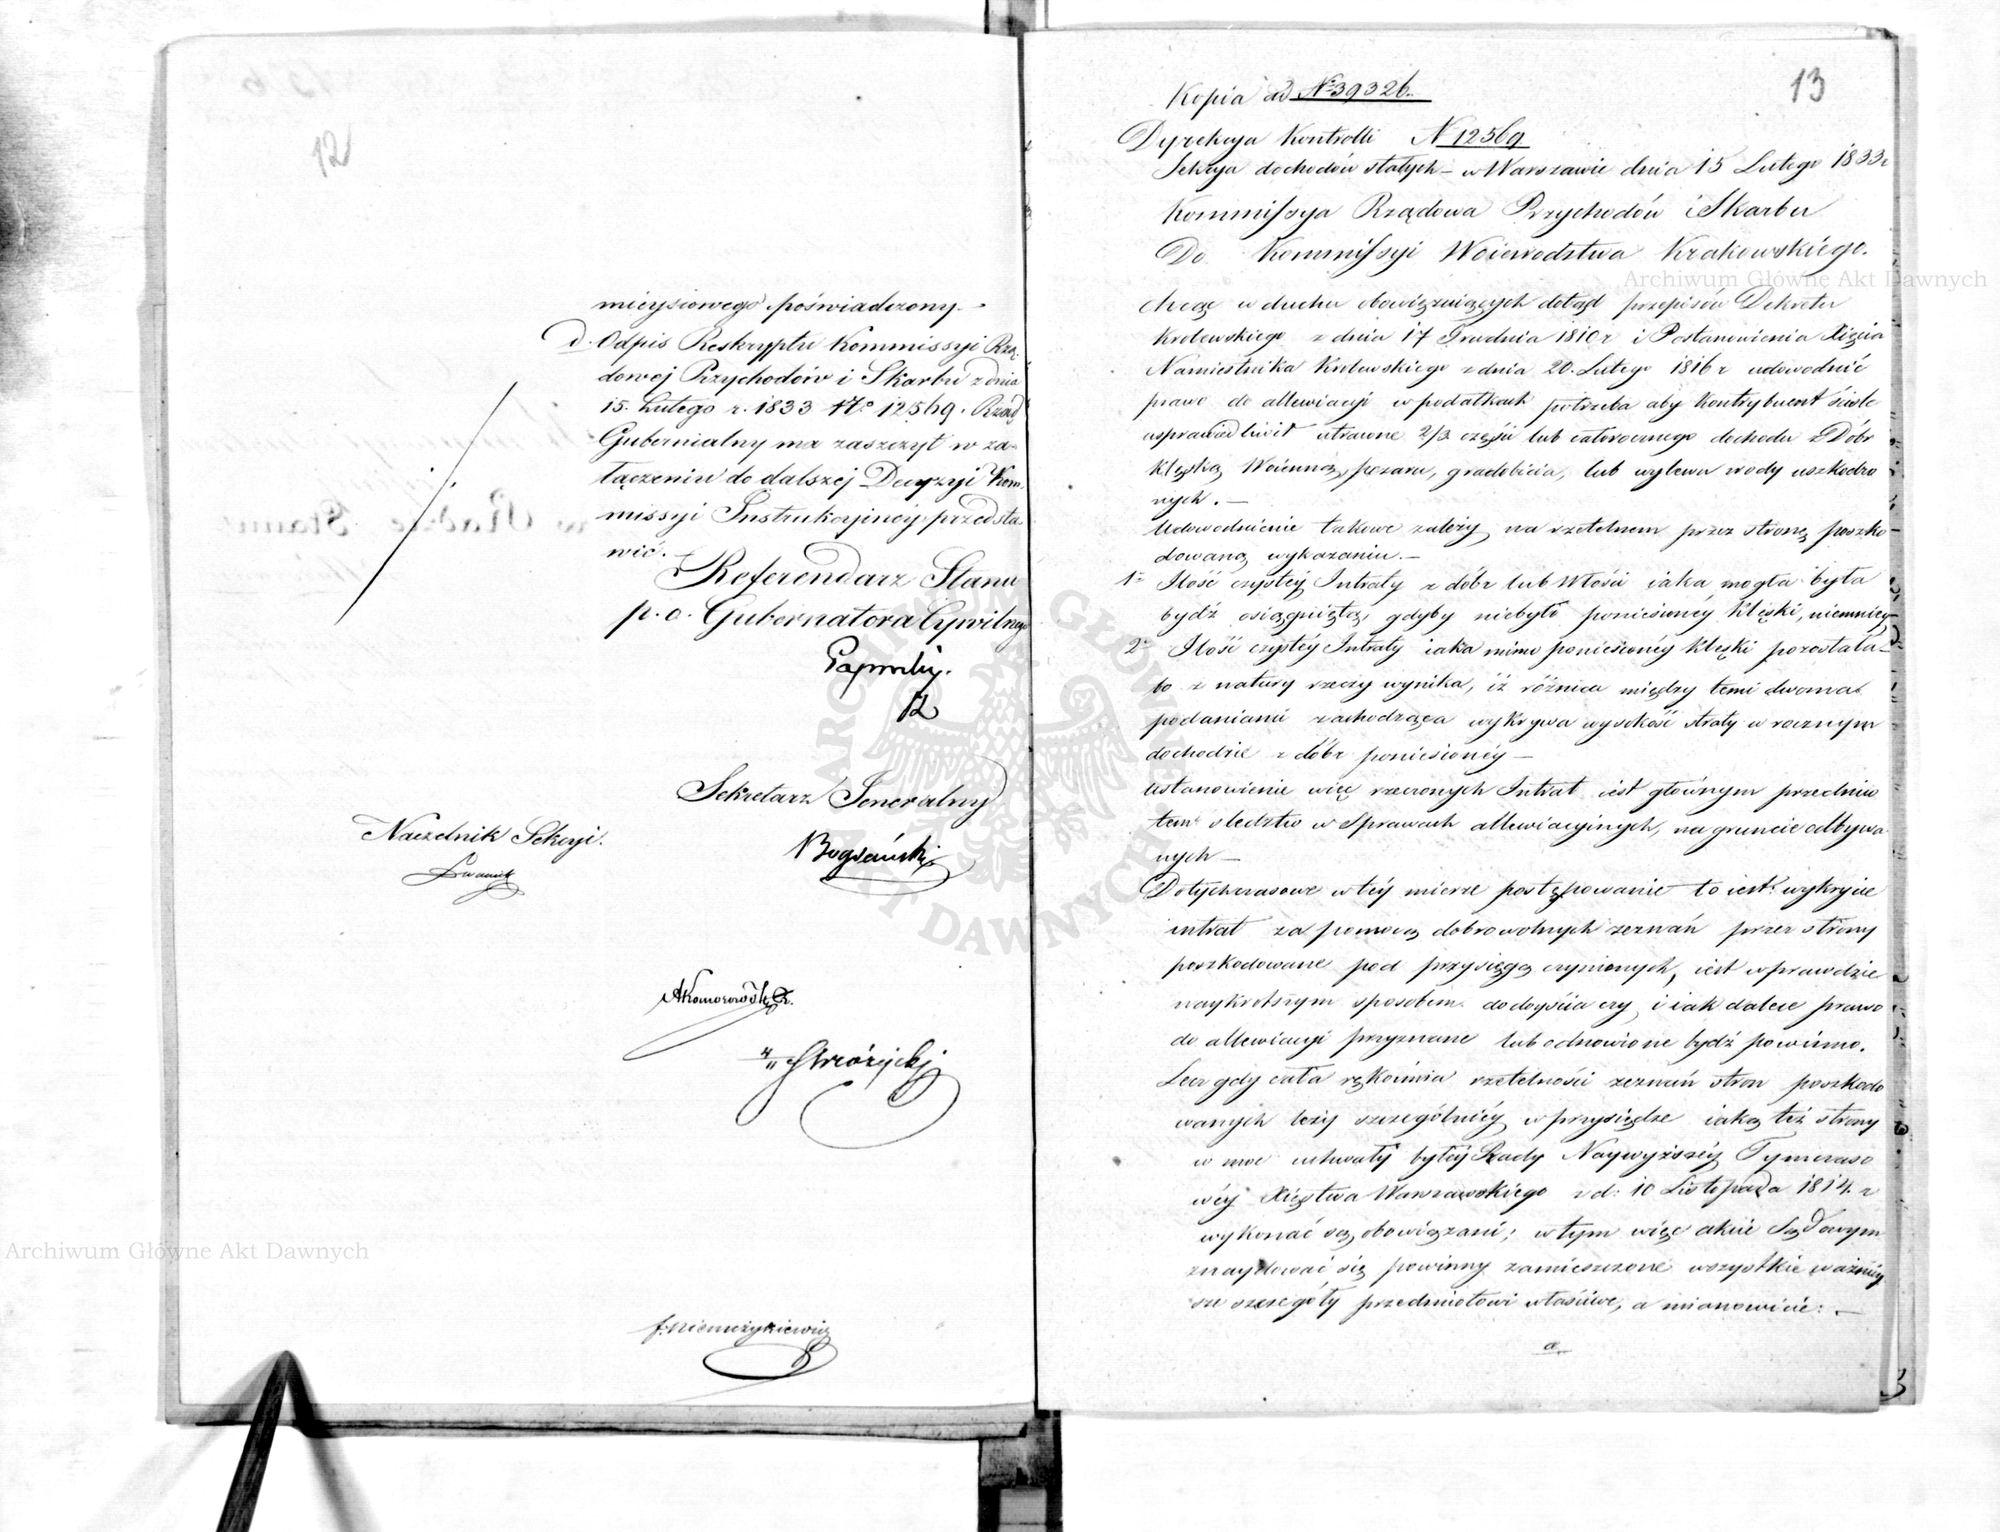 12
mieyscowego poświadczony. -
d. Odpis Reskryptu Kommissyi Rzą-
dowej Przychodów i Skarbu z dnia
15. Lutego r. 1833 No 12569. Rząd
Gubernialny ma zaszczyt w za-
łączeniu do dalszej Decyzyi Kom-
missyi Instrukcyjnéj przedsta-
wić. -
Referendarz Stanu
p. o. Gubernatora Cywilnego
12
Sekretarz Jeneralny
Naczelnik Sekcyi.
Bogdański
AKomorowski
f. Niemczykiewicz
13
Kopia ad No 39326.
Dyrekcya Kontrolli N 12569
Sekcya dochodów stałych - w Warszawie dnia 15 Lutego 1833 r
Kommissya Rządowa Przychodów i Skarbu
Do Kommissyi Woiewodztwa Krakowskiego.
Chcąc w duchu obowiązuiących dotąd przepisów Dekretu
Krolewskiego z dnia 17 Grudnia 1810 r i Postanowienia Xięcia
Namiestnika Krolewskiego z dnia 20. Lutego 1816 r udowodnić
prawo do allewiacyi w podatkach potrzeba aby Kontrybuent ściśle
usprawiedliwił utracone 2/3 części lub całorocznego dochodu z Dóbr
klęską Woienną, pożaru, gradobicia, lub wylewu wody uszkodzo
nych. -
Udowodnienie takowe zależy na rzetelnem przez stronę poszko-
dowaną wykazaniu. -
1o Ilość czystéy Intraty z dóbr lub Włości iaka mogła była
bydź osiągnięta, gdyby niebyło poniesionéy klęski, niemniéy
2o Ilość czystéy Intraty iaka mimo poniesionéy klęski pozostała -
bo z natury rzeczy wynika, iż różnica między temi dwoma
podaniami zachodząca wykrywa wysokość straty w rocznym
dochodzie z dóbr poniesionéy -
Ustanowienie więc rzeczonych Intrat iest głównym przedmio
tem śledztw w Sprawach allewiacyinych, na gruncie odbywa
nych -
Dotychczasowe w téy mierze postępowanie to iest: wykrycie
intrat za pomocą dobrowolnych zeznań przez strony
poszkodowane pod przysięgą czynionych, iest wprawdzie
naykrotszym sposobem do doyścia czy i iak dalece prawo
do allewiacyi przyznane lub odmowione bydź powinno.
Lecz gdy cała rękoimia rzetelności zeznań stron poszkodo
wanych leży szczególniéy w przysiędze iaką też strony
w moc uchwały byłéy Rady Naywyższéy Tymczaso
wéy Xięstwa Warszawskiego z d: 10 Listopada 1814 r
wykonać są obowiązani; w tym więc akcie Sądowym
znaydować się powinny zamieszczone wszystkie ważniéy
sze szczegóły przedmiotowi właściwe, a mianowicie: -
a
Archiwum Główne Akt Dawnych
Archiwum Główne Akt Dawnych
ARCHIWUM GŁÓWNE AKT DAWNYCH